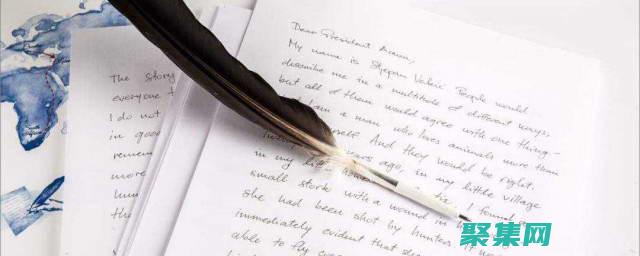 The story
everyone t
I do not
in good
remem
more
hun
the
Dear President Aoun,
My name is Stjepan Vokić. People would
describe me in a multitude of different ways,
but all of them would agree with one thing -
I am a man who loves animals more than
myself. And they would be right.
years ago, in my little village
in my I found a
small stork with a wound in
she had been shot by hunters. It was
immediately evident that she
able to fly
聚集网